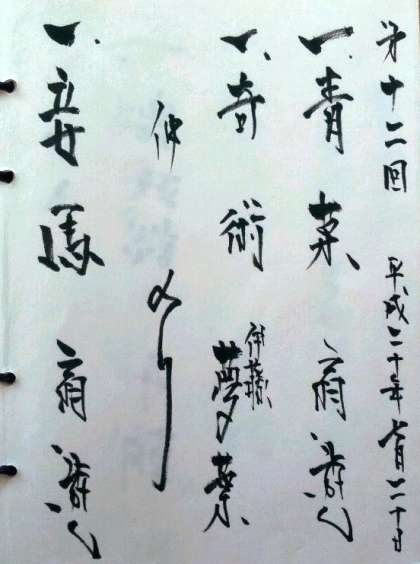 第十二回 平成二十年七月二十日
一、青菜 扇遊
一、奇術 伊藤夢葉
仲入り
一、妾馬 扇遊